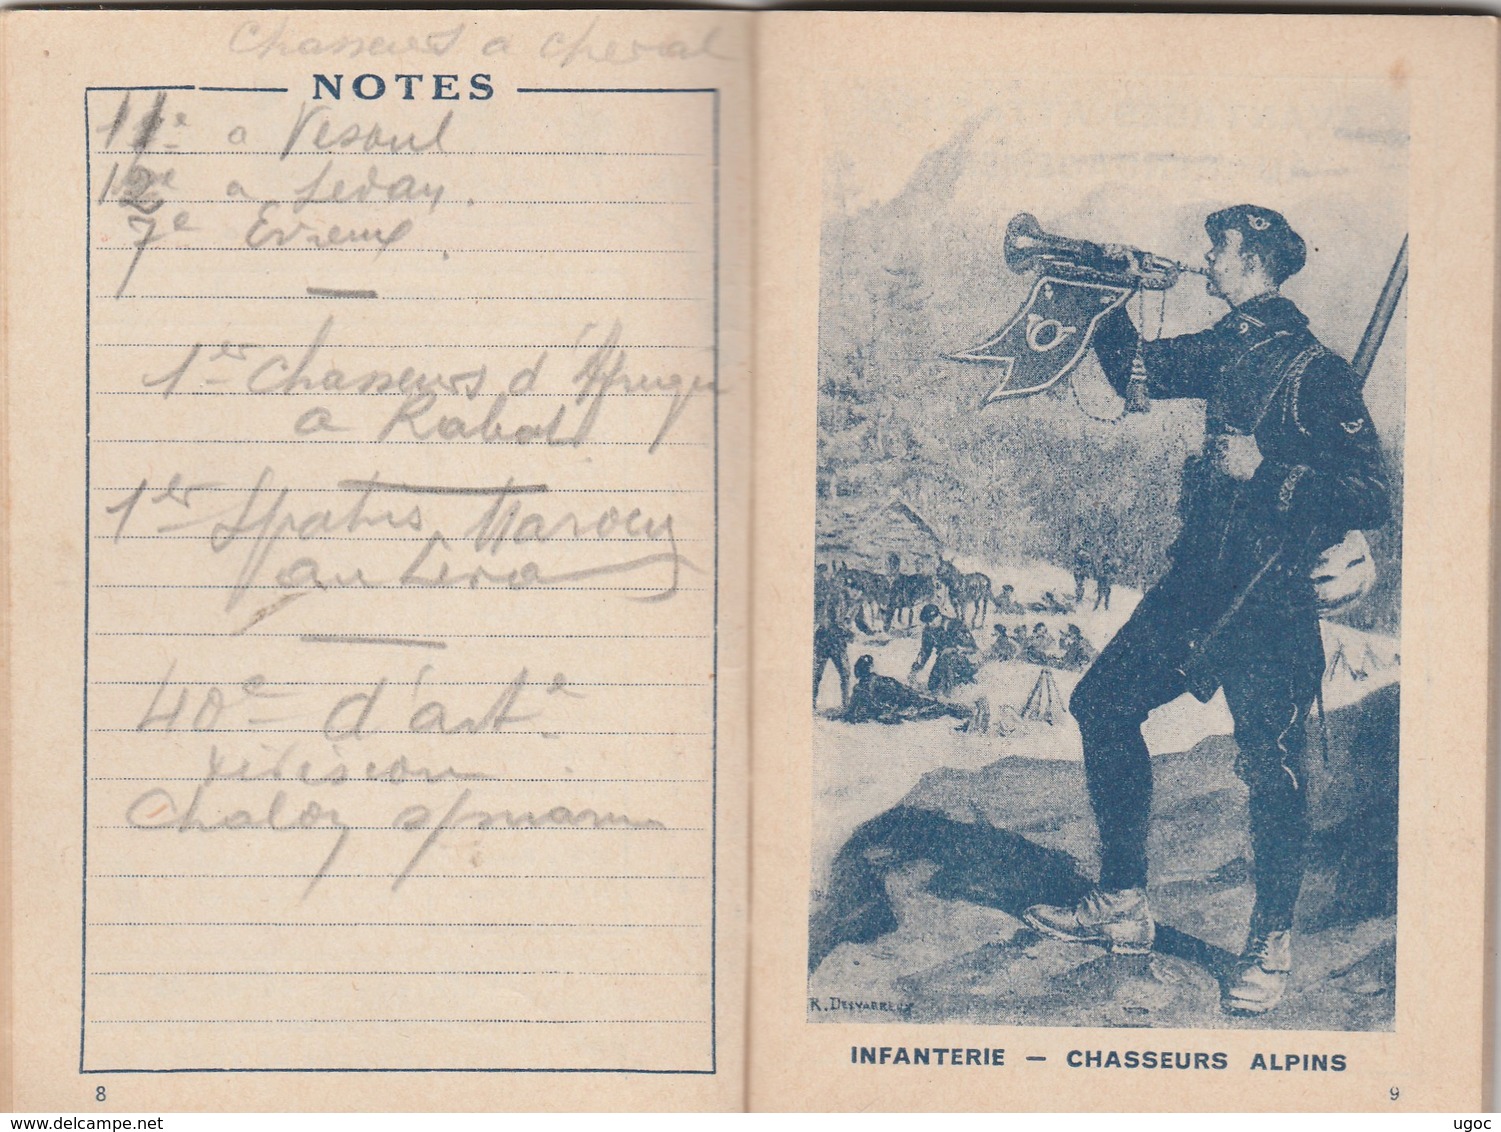 Chasseurs a cheval
NOTES
11e a Vesoul
12e a Sedan.
7e Evreux.
1er Chasseurs d'Afrique
a Rabat
1er Spahis Maroc
au
40e d'arte
division
Chalon s/marne
8
R. DESVARREUX
INFANTERIE — CHASSEURS ALPINS
9
www.delcampe.net
ugoc